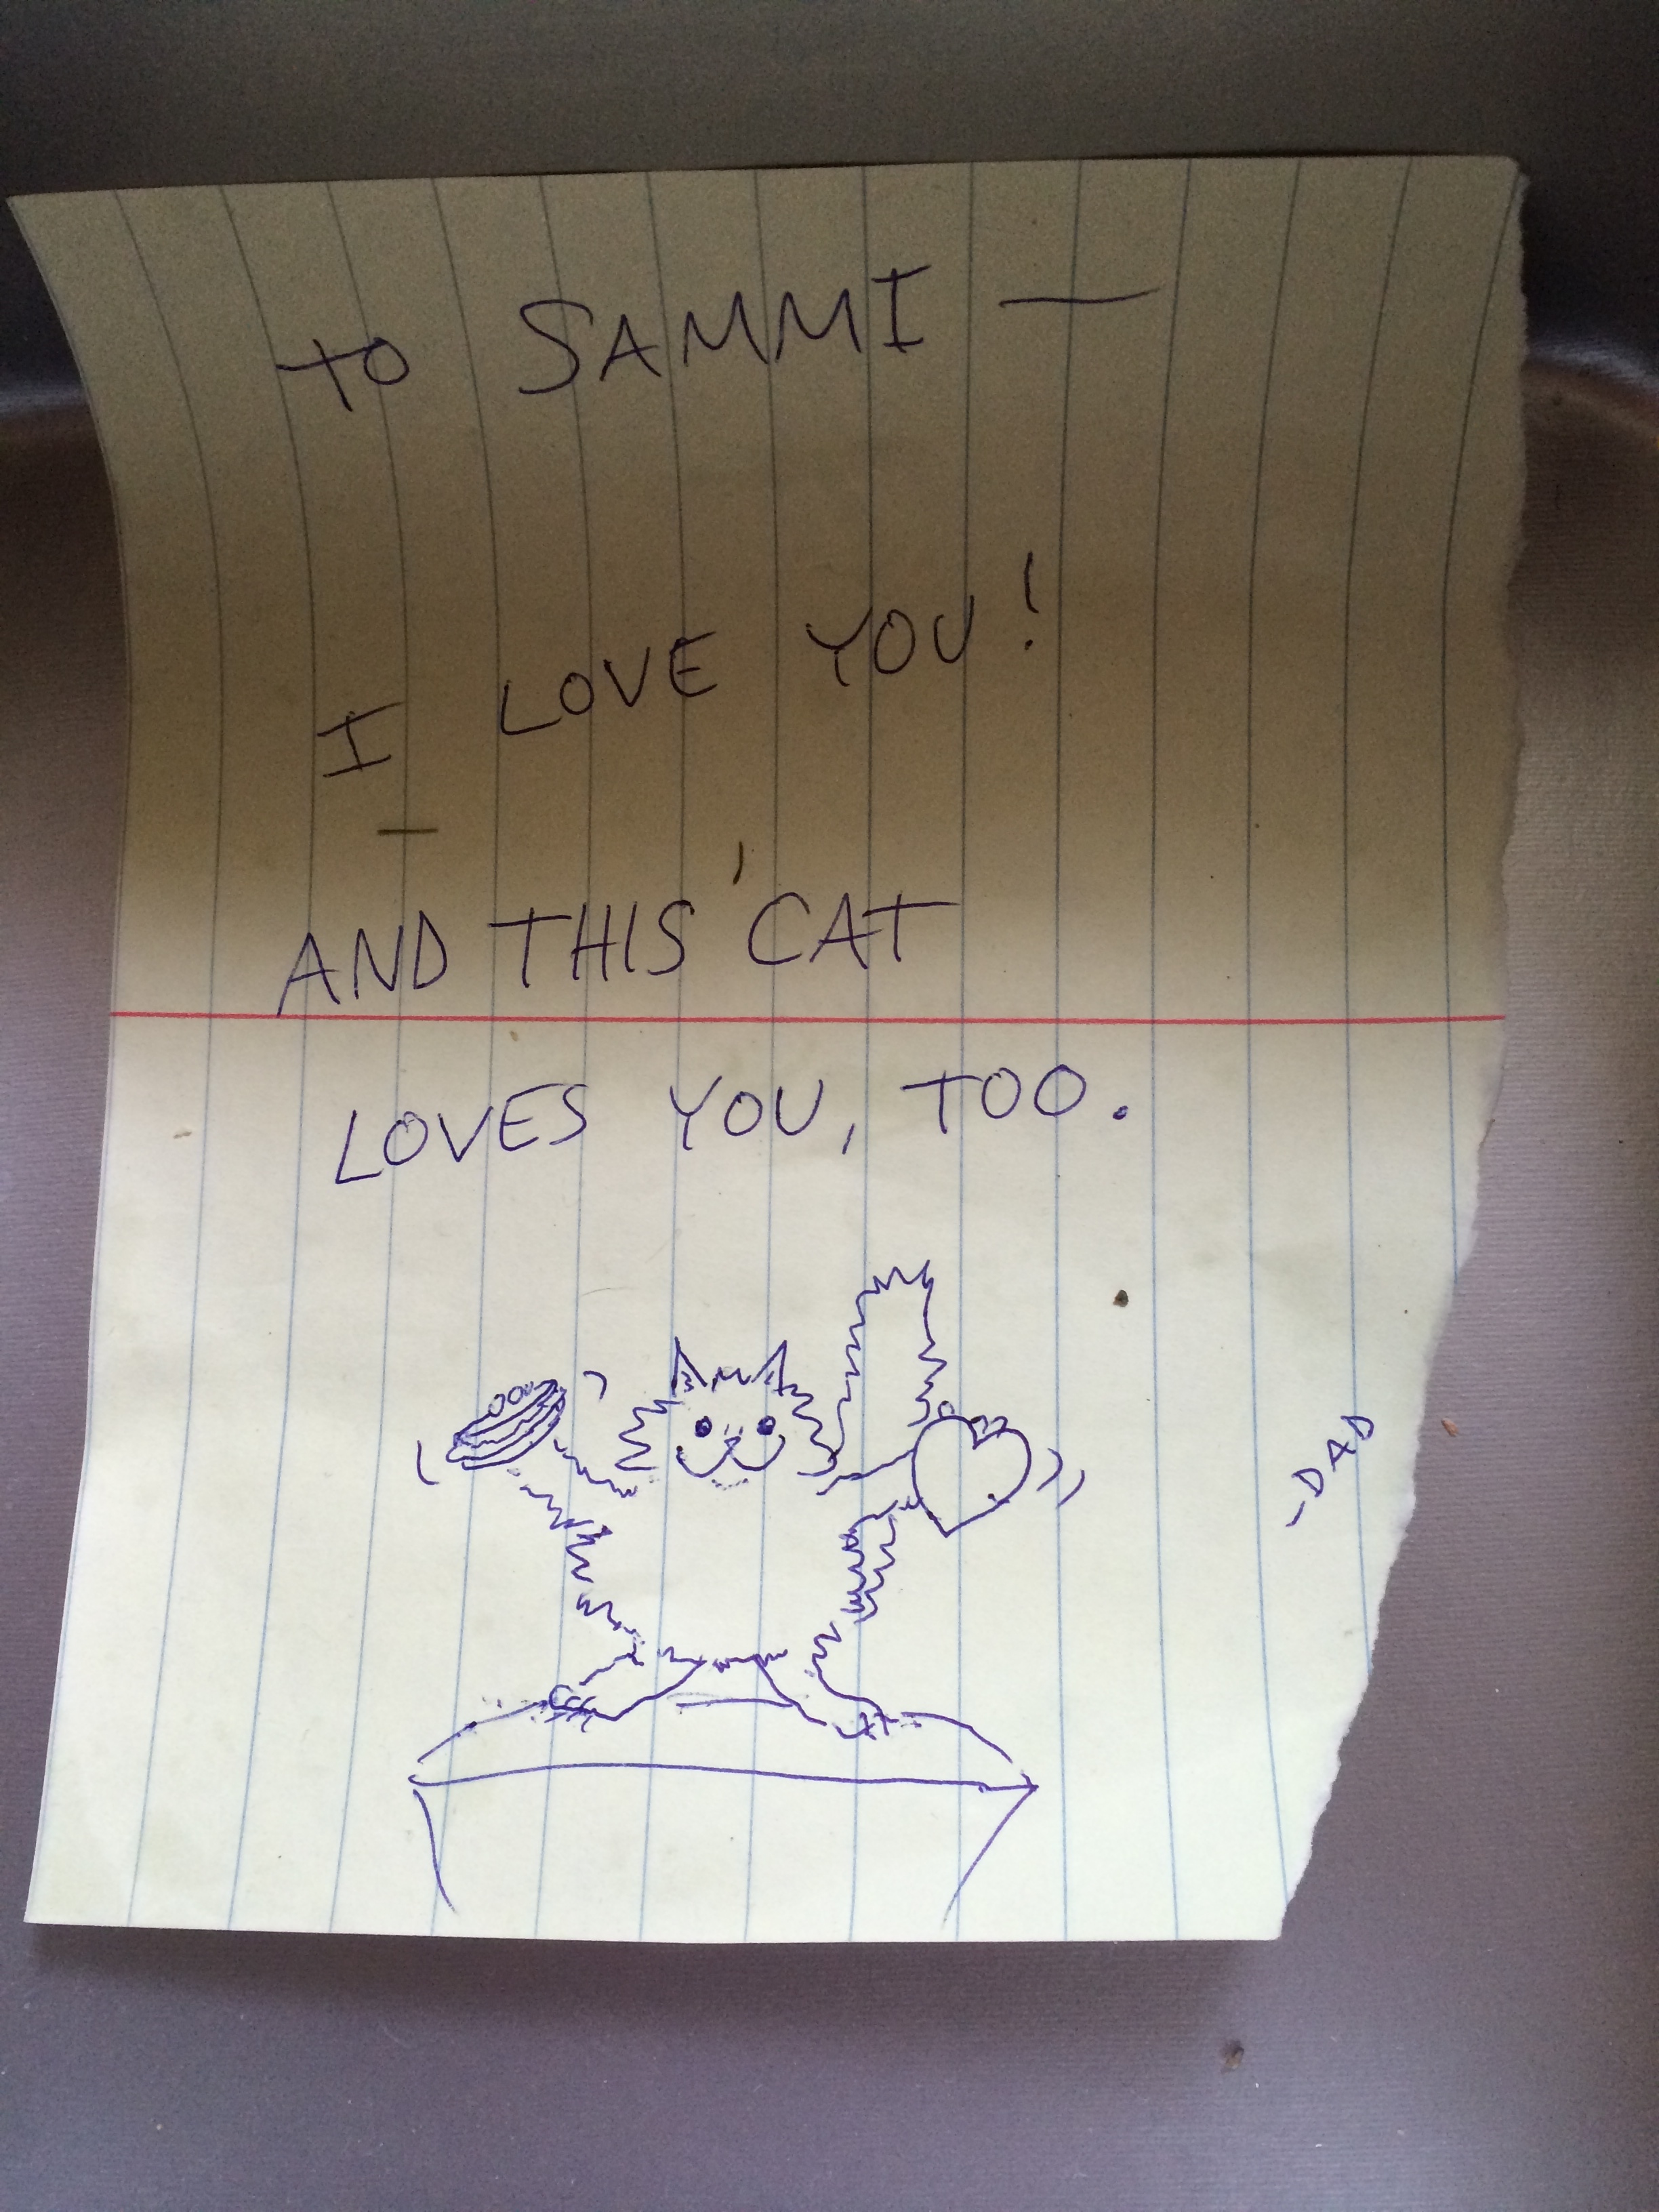 TO SAMMI —
I LOVE YOU!
AND THIS CAT
LOVES YOU, TOO.
-DAD